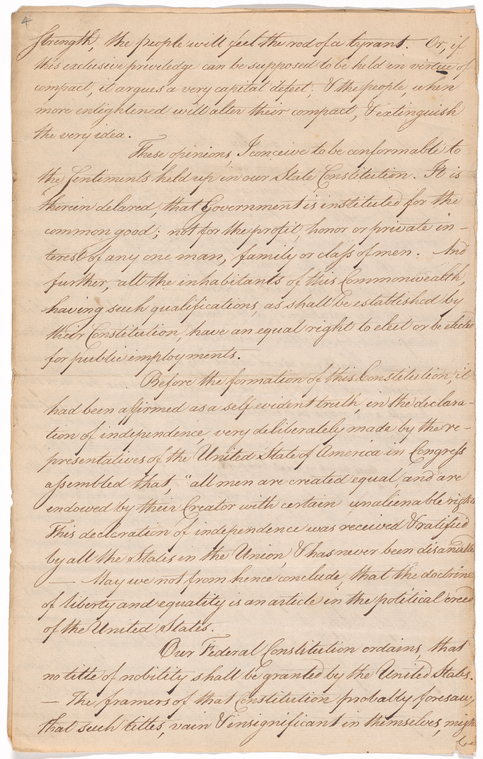 4
strength, the people will feel the rod of a tyrant. Or, if
this exclusive priviledge can be supposed to be held in virtue of
compact, it argues a very capital defect; & the people, when
more enlightened will alter their compact, & extinguish
the very idea.
These opinions, I conceive to be conformable to
the sentiments held up in our State Constitution. It is
therein delared, that Government is instituted for the
common good; not for the profit, honor or private in-
terest of any one man, family or class of men. And
further, all the inhabitants of this Commonwealth,
having such qualifications, as shall be established by
their Constitution, have an equal right to elect or be elected
for public employments.
Before the formation of this Constitution, it
had been affirmed as a self evident truth, in the declara-
tion of independence, very deliberately made by the re-
presentatives of the United State of America in Congress
assembled that "all men are created equal, and are
endowed by their Creator with certain unalienable rights
This decleration of independence was received & ratified
by all the States in the Union, & has never been disannulled
— May we not from hence conclude, that the doctrine
of liberty and equality is an article in the political creed
of the United States.
Our Federal Constitution ordains, that
no title of nobility shall be granted by the United States.
— The framers of that Constitution probably foresaw,
that such titles, vain & insignificant in themselves, might